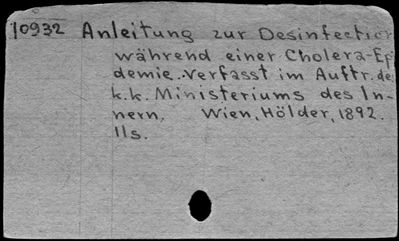 10932 Anleitung zur Desinfection
während einer Cholera-Ep
demie. Verfasst im Auftr. de
k.k. Ministeriums des In-
nern. Wien, Hölder, 1892.
11s.